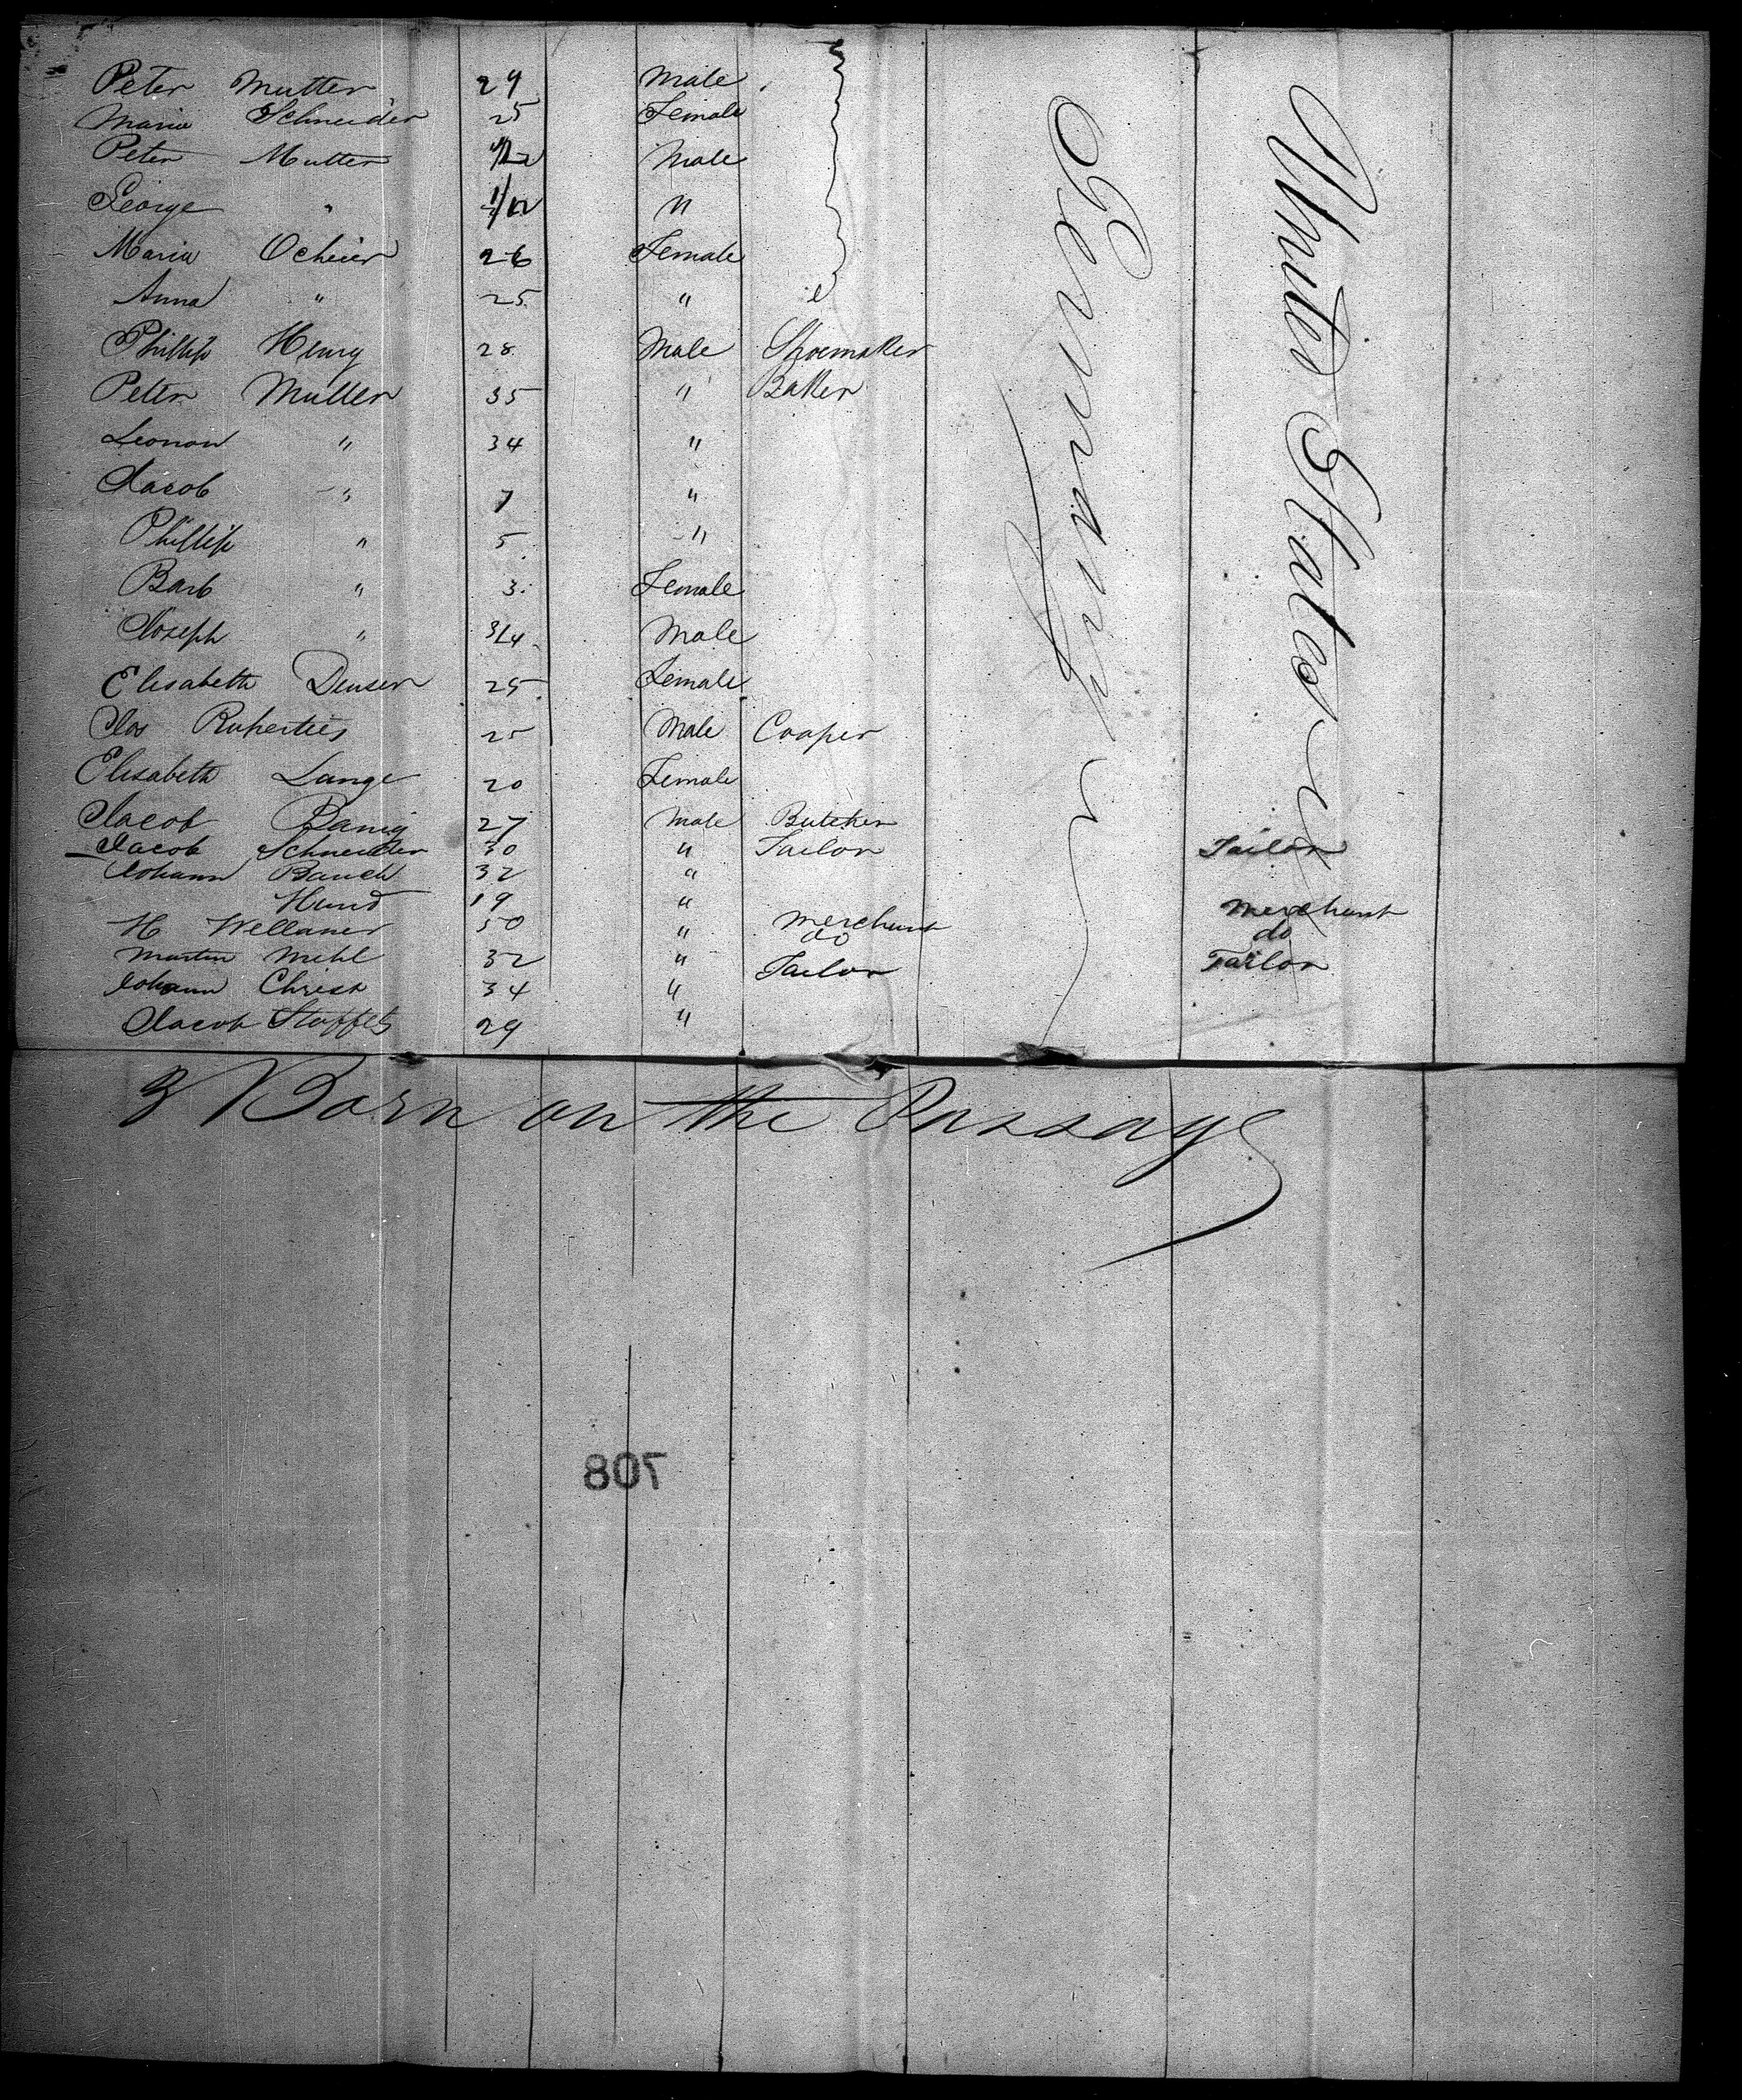 Peter Mutter 29 Male
Maria Schneider 25 Female
Peter Mutter Male
George " 1/12 "
Maria Ocheier 26 Female
Anna " 25 "
Phillip Henry 28 Male Shoemaker
Peter Muller 35 " Baker
Leonon " 34 "
Jacob " 7 "
Phillip " 5 "
Barb " 3 Female
Joseph " 3/4 Male
Elisabeth Deuser 25 Female
Jos Ruperties 25 Male Cooper
Elisabeth Lange 20 Female
Jacob Banig 27 Male Butcher
Jacob Schneider 30 " Tailor Tailor
Johann Bauch 32 "
Hund 19 "
H Wellaner 50 " Merchant Merchant
do do
Martin Mehl 32 " Tailor Tailor
Johann Christ 34 "
Jacob Stoffels 29 "
Germany
United States
3 Born on the Passage
708